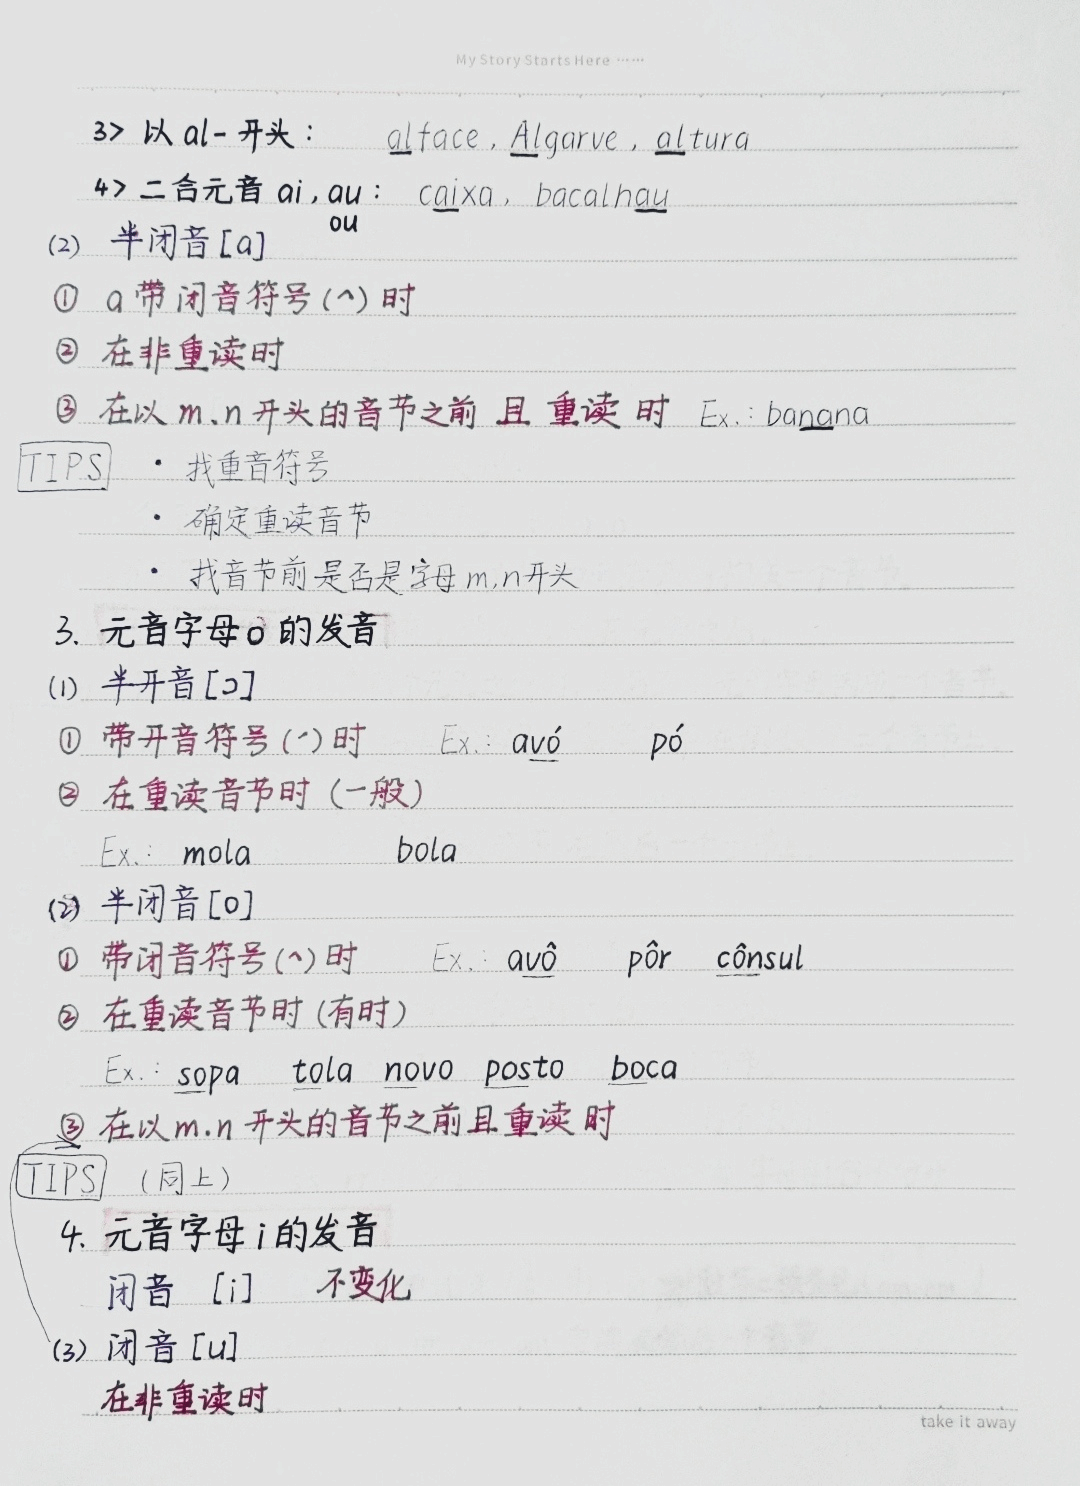 My Story Starts Here ······
3> 以 al- 开头： alface , Algarve , altura
4> 二合元音 ai , au： caixa , bacalhau
ou
(2) 半闭音 [a]
① a 带闭音符号(^)时
② 在非重读时
③ 在以 m、n 开头的音节之前 且 重读 时 Ex.: banana
TIPS · 找重音符号
· 确定重读音节
· 找音节前是否是字母 m,n开头
3. 元音字母 o 的发音
(1) 半开音 [ɔ]
① 带开音符号(´)时 Ex.: avó pó
② 在重读音节时 (一般)
Ex.: mola bola
(2) 半闭音 [o]
① 带闭音符号(^)时 Ex.: avô pôr cônsul
② 在重读音节时 (有时)
Ex.: sopa tola novo posto boca
③ 在以 m.n 开头的音节之前且重读 时
TIPS (同上)
4. 元音字母 i 的发音
闭音 [i] 不变化
(3) 闭音 [u]
在非重读时
take it away